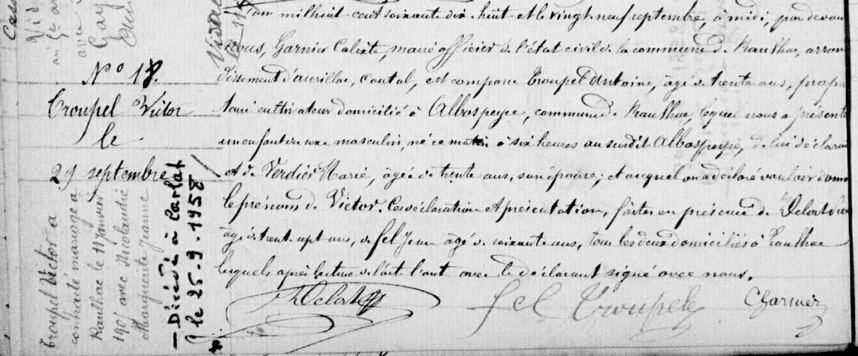 N° 18.
Troupel Victor
le
29 septembre
Troupel Victor a
contracté mariage à
Raulhac le 11 Janvier
1905 avec
Marguerite Jeanne
— Décédé à Carlat
le 25-9-1958
L'an mil huit cent soixante dix huit et le vingt neuf septembre, à midi, par devant
nous, Garnier Calixt, maire officier de l'état civil de la commune de Raulhac, arron
dissement d'aurillac, cantal, est comparu Troupel Antoine, âgé de trente ans, propri
taire cultivateur domicilié à Albospeyre, commune de Raulhac, lequel nous a présenté
un enfant du sexe masculin, né ce matin à six heures au susdit Albospeyre, de lui déclarant
et de Verdier Marie, âgée de trente ans, son épouse, et auquel on a déclaré vouloir donner
le prénom de Victor. Ces déclaration et présentation, faites en présence de
âgé de trente sept ans, de fel Jean âgé de soixante ans, tous les deux domiciliés à Raulhac
lesquels après lecture de l'acte l'ont avec le déclarant signé avec nous.
fel Troupel